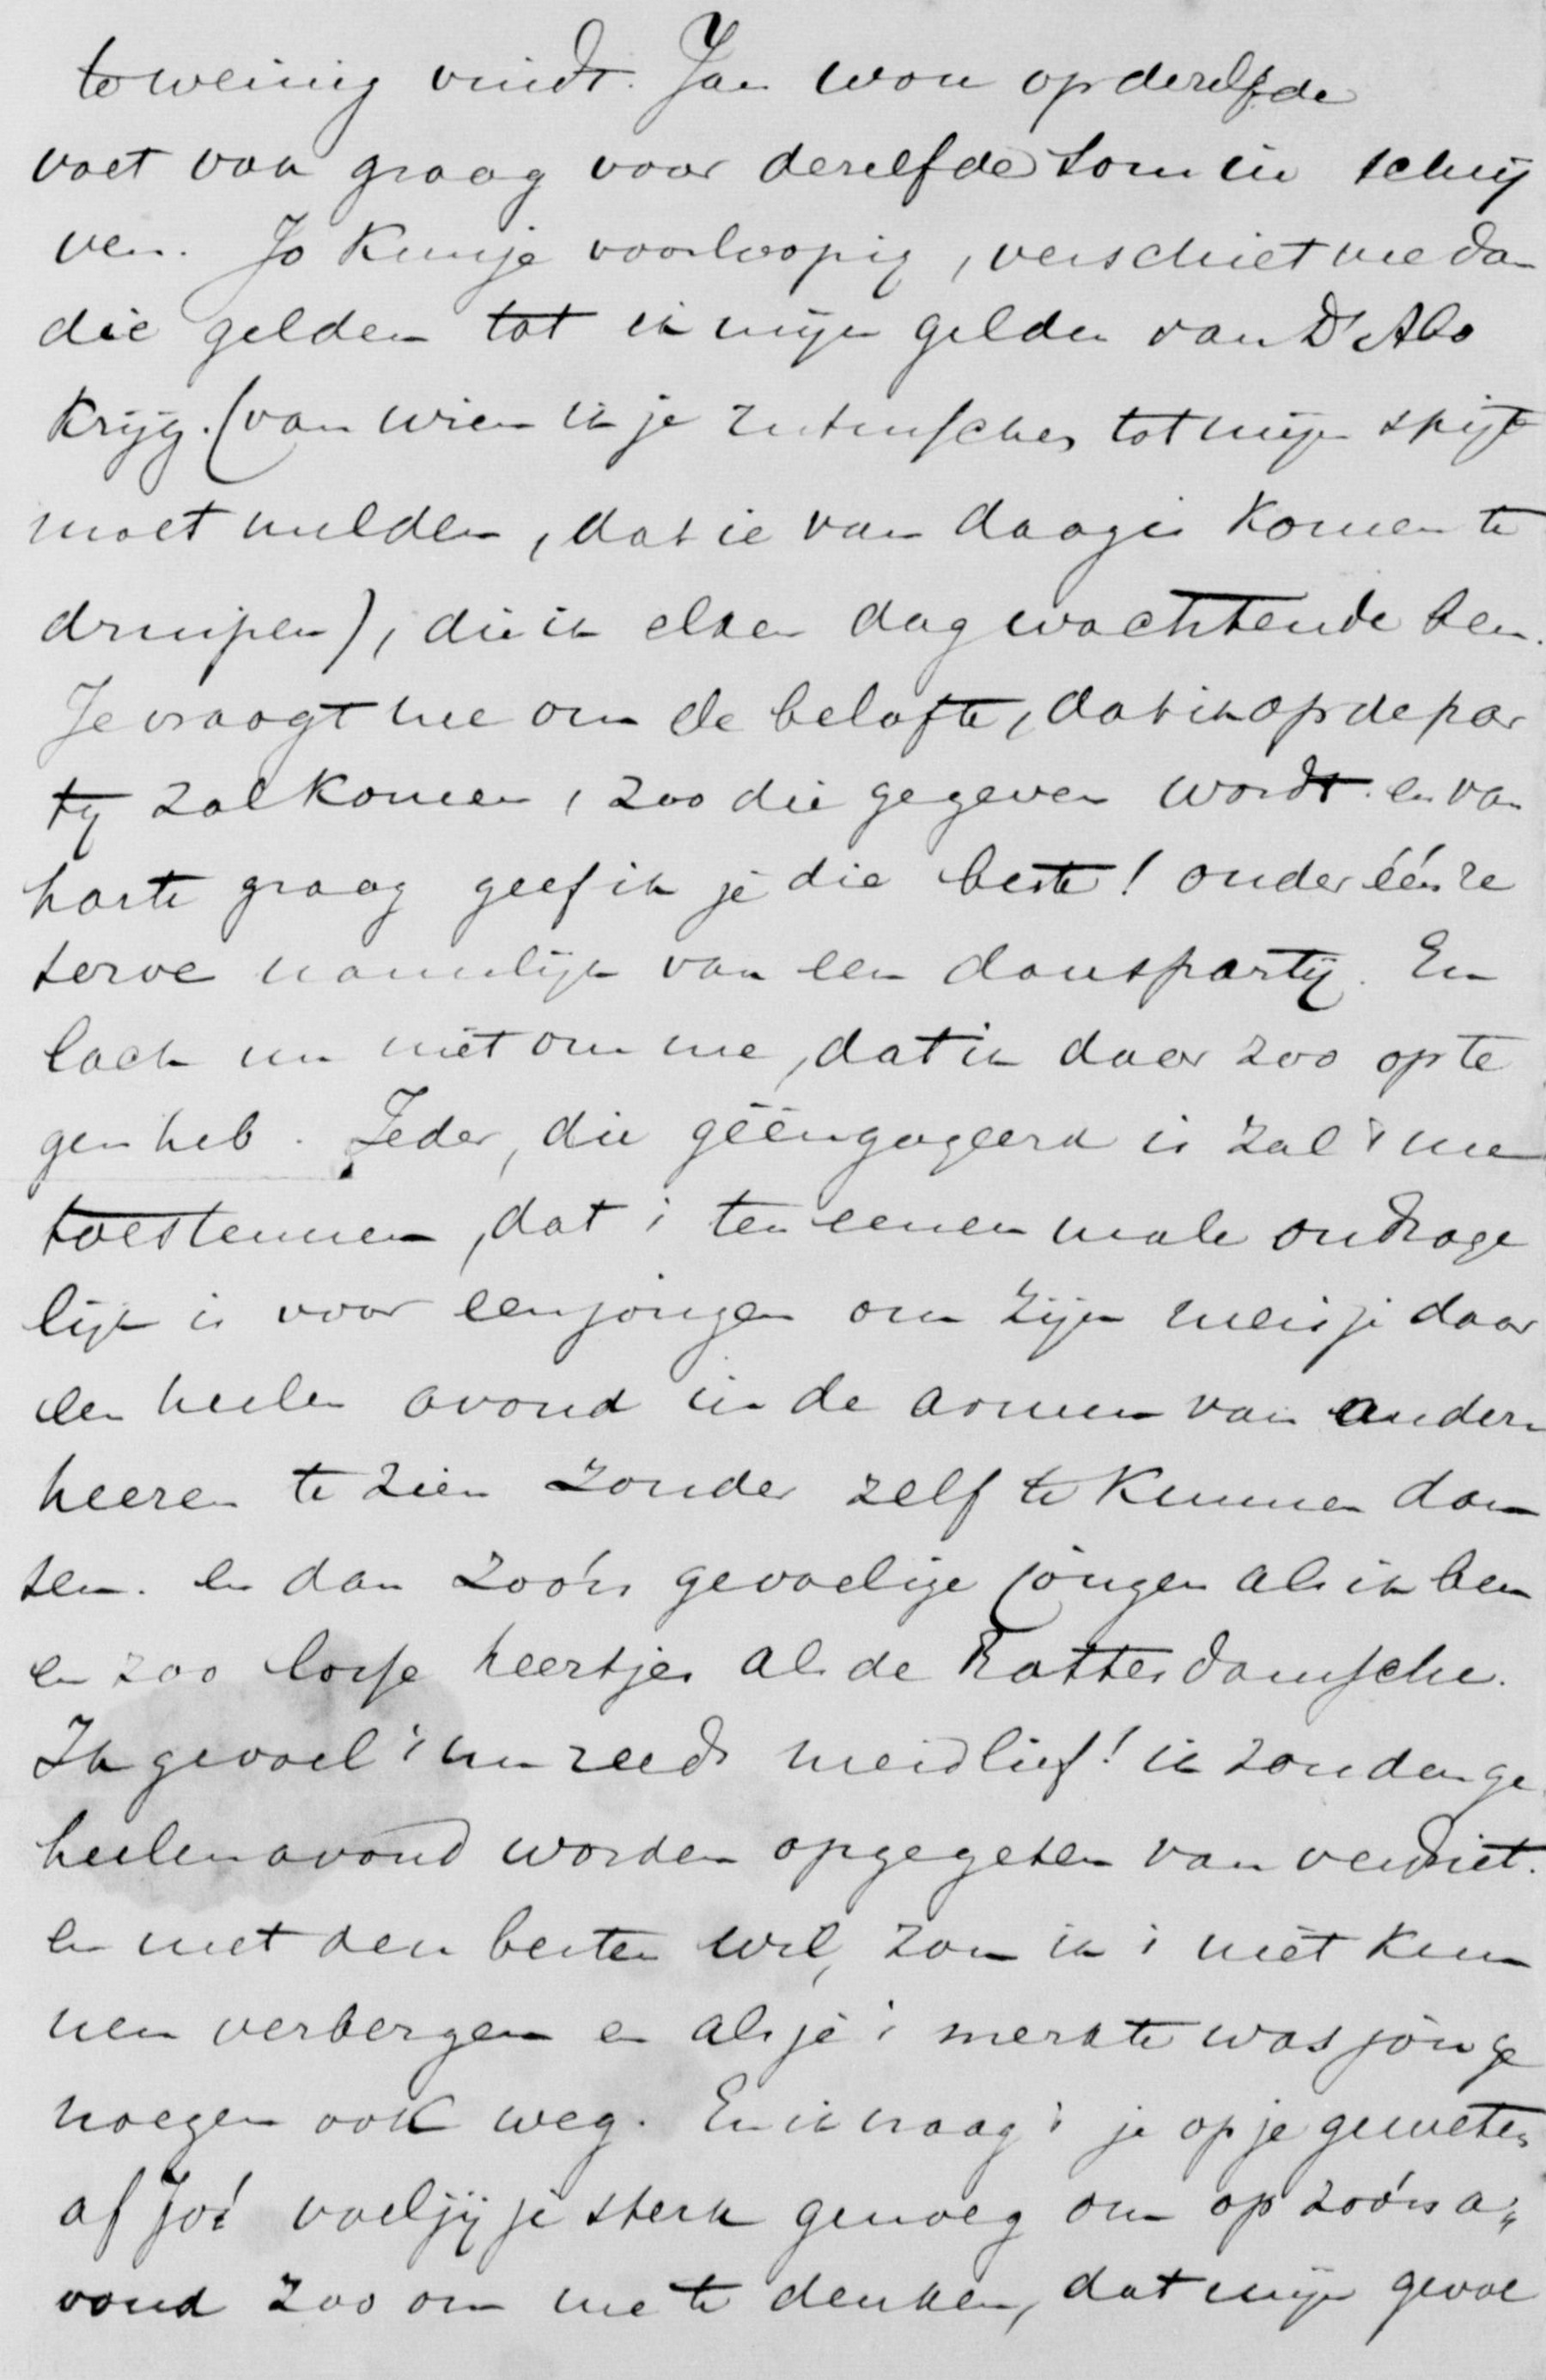 te weinig vindt. Jan wou op dezelfde
voet ook graag voor dezelfde som in schrij
ven. Jo kun je voorloopig, verschiet me dan
die gelden tot ik mijn gelden van Dr Abo
krijg. (van wien ik je intusschen tot mijn spijt
moet melden, dat ie van daag is komen te
druipen), die ik elken dag wachtende ben.
Je vraagt me om de belofte, dat ik op de par
tij zal komen, zoo die gegeven wordt. en van
harte graag geef ik je die beste! onder één re
serve namelijk van een danspartij. En
lach nu niet om me, dat ik daar zoo op te
gen heb. Ieder, die geëngageerd is zal 't me
toestemmen, dat 't ten eenen male ondrage
lijk is voor een jongen om zijn meisje daar
den heelen avond in de armen van andere
heeren te zien zonder zelf te kunnen dan
sen. en dan zoo'n gevoelige jongen als ik ben
en zoo losse heertjes als de Rotterdamsche.
Ik gevoel 't nu reeds meidlief! ik zou den ge
heelen avond worden opgegeten van verdriet.
en met den besten wil, zou ik 't niet kun
nen verbergen en als je 't merkte was jou ge
noegen ook weg. En ik vraag 't je op je geweten
af Jo! voel jij je sterk genoeg om op zoo'n a„
vond zoo om me te denken, dat mijn gevoe